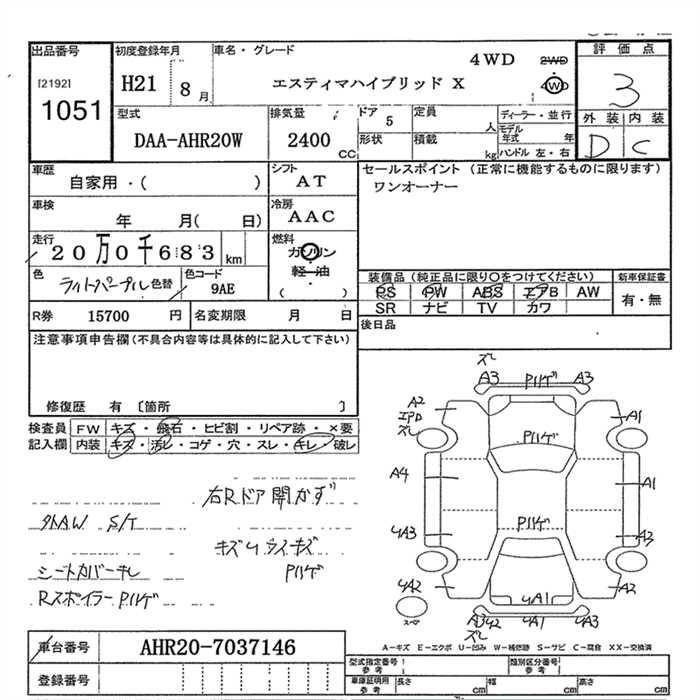 出品番号 初度登録年月 車名・グレード 4WD 2WD 評価点
[2192] H21 8月 エスティマハイブリッド X 4WD 3
1051
型式 排気量 ドア 定員 ディーラー・並行 外装 内装
DAA-AHR20W 2400 CC 5 人 モデル年式 年 D C
形状 積載 kg ハンドル 左・右
車歴 シフト セールスポイント (正常に機能するものに限ります)
自家用・( ) AT ワンオーナー
車検 冷房
年 月( 日) AAC
走行 燃料
20万0千683 km ガソリン
軽・油
( )
色 ライトパープル 色替 色コード 9AE
装備品(純正品に限り○をつけてください) 新車保証書
PS PW ABS エアB AW 有・無
SR ナビ TV カワ
R券 15700 円 名変期限 月 日 後日品
注意事項申告欄(不具合内容等は具体的に記入して下さい)
修復歴 有 〔箇所 〕
検査員 FW キズ・飛石・ヒビ割・リペア跡・×要
記入欄 内装 キズ・汚レ・コゲ・穴・スレ・キレ・破レ
右Rドア開かず
外AW S/T
シートカバーキレ
Rスポイラー Pハゲ
Pハゲ
ズレ
A3 Pハゲ A3
A2 A1
ズレ
Pハゲ
A4 A1
Pハゲ
4A3 A3
4A2 4A1 A2
スペア
A342 4A1 4A3
ズレ
A-キズ E-エクボ U-凹み W-補修跡 S-サビ C-腐食 XX-交換済
車台番号 AHR20-7037146
登録番号
型式指定番号 参考 類別区分番号 参考
車庫証明用 参考 長さ cm 幅 cm 高さ cm